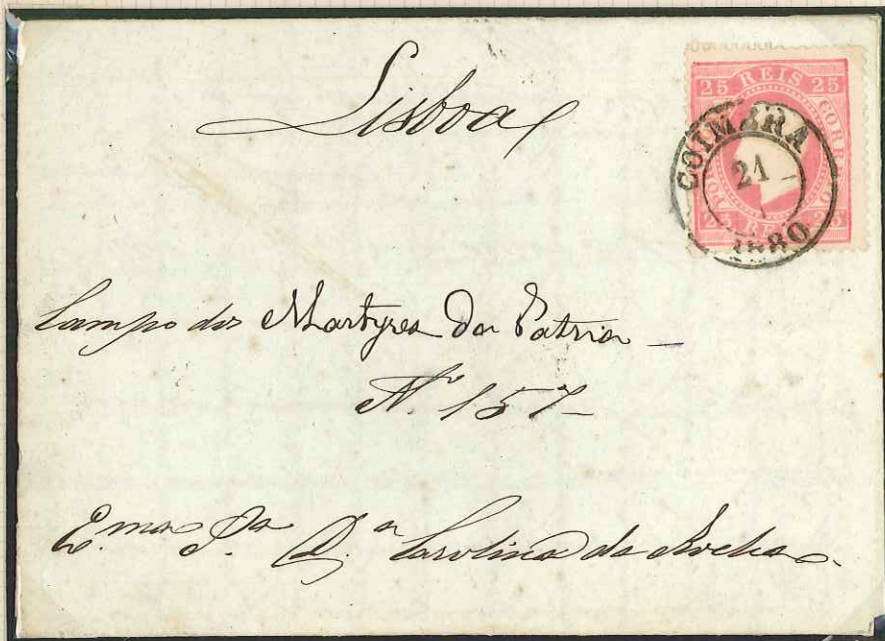 Lisboa
25 REIS 25
CORREIO
COIMBRA
21
1880
Campo dos Martyres da Patria
Nº 157
E.ma S.ra D.na Carolina da Rocha